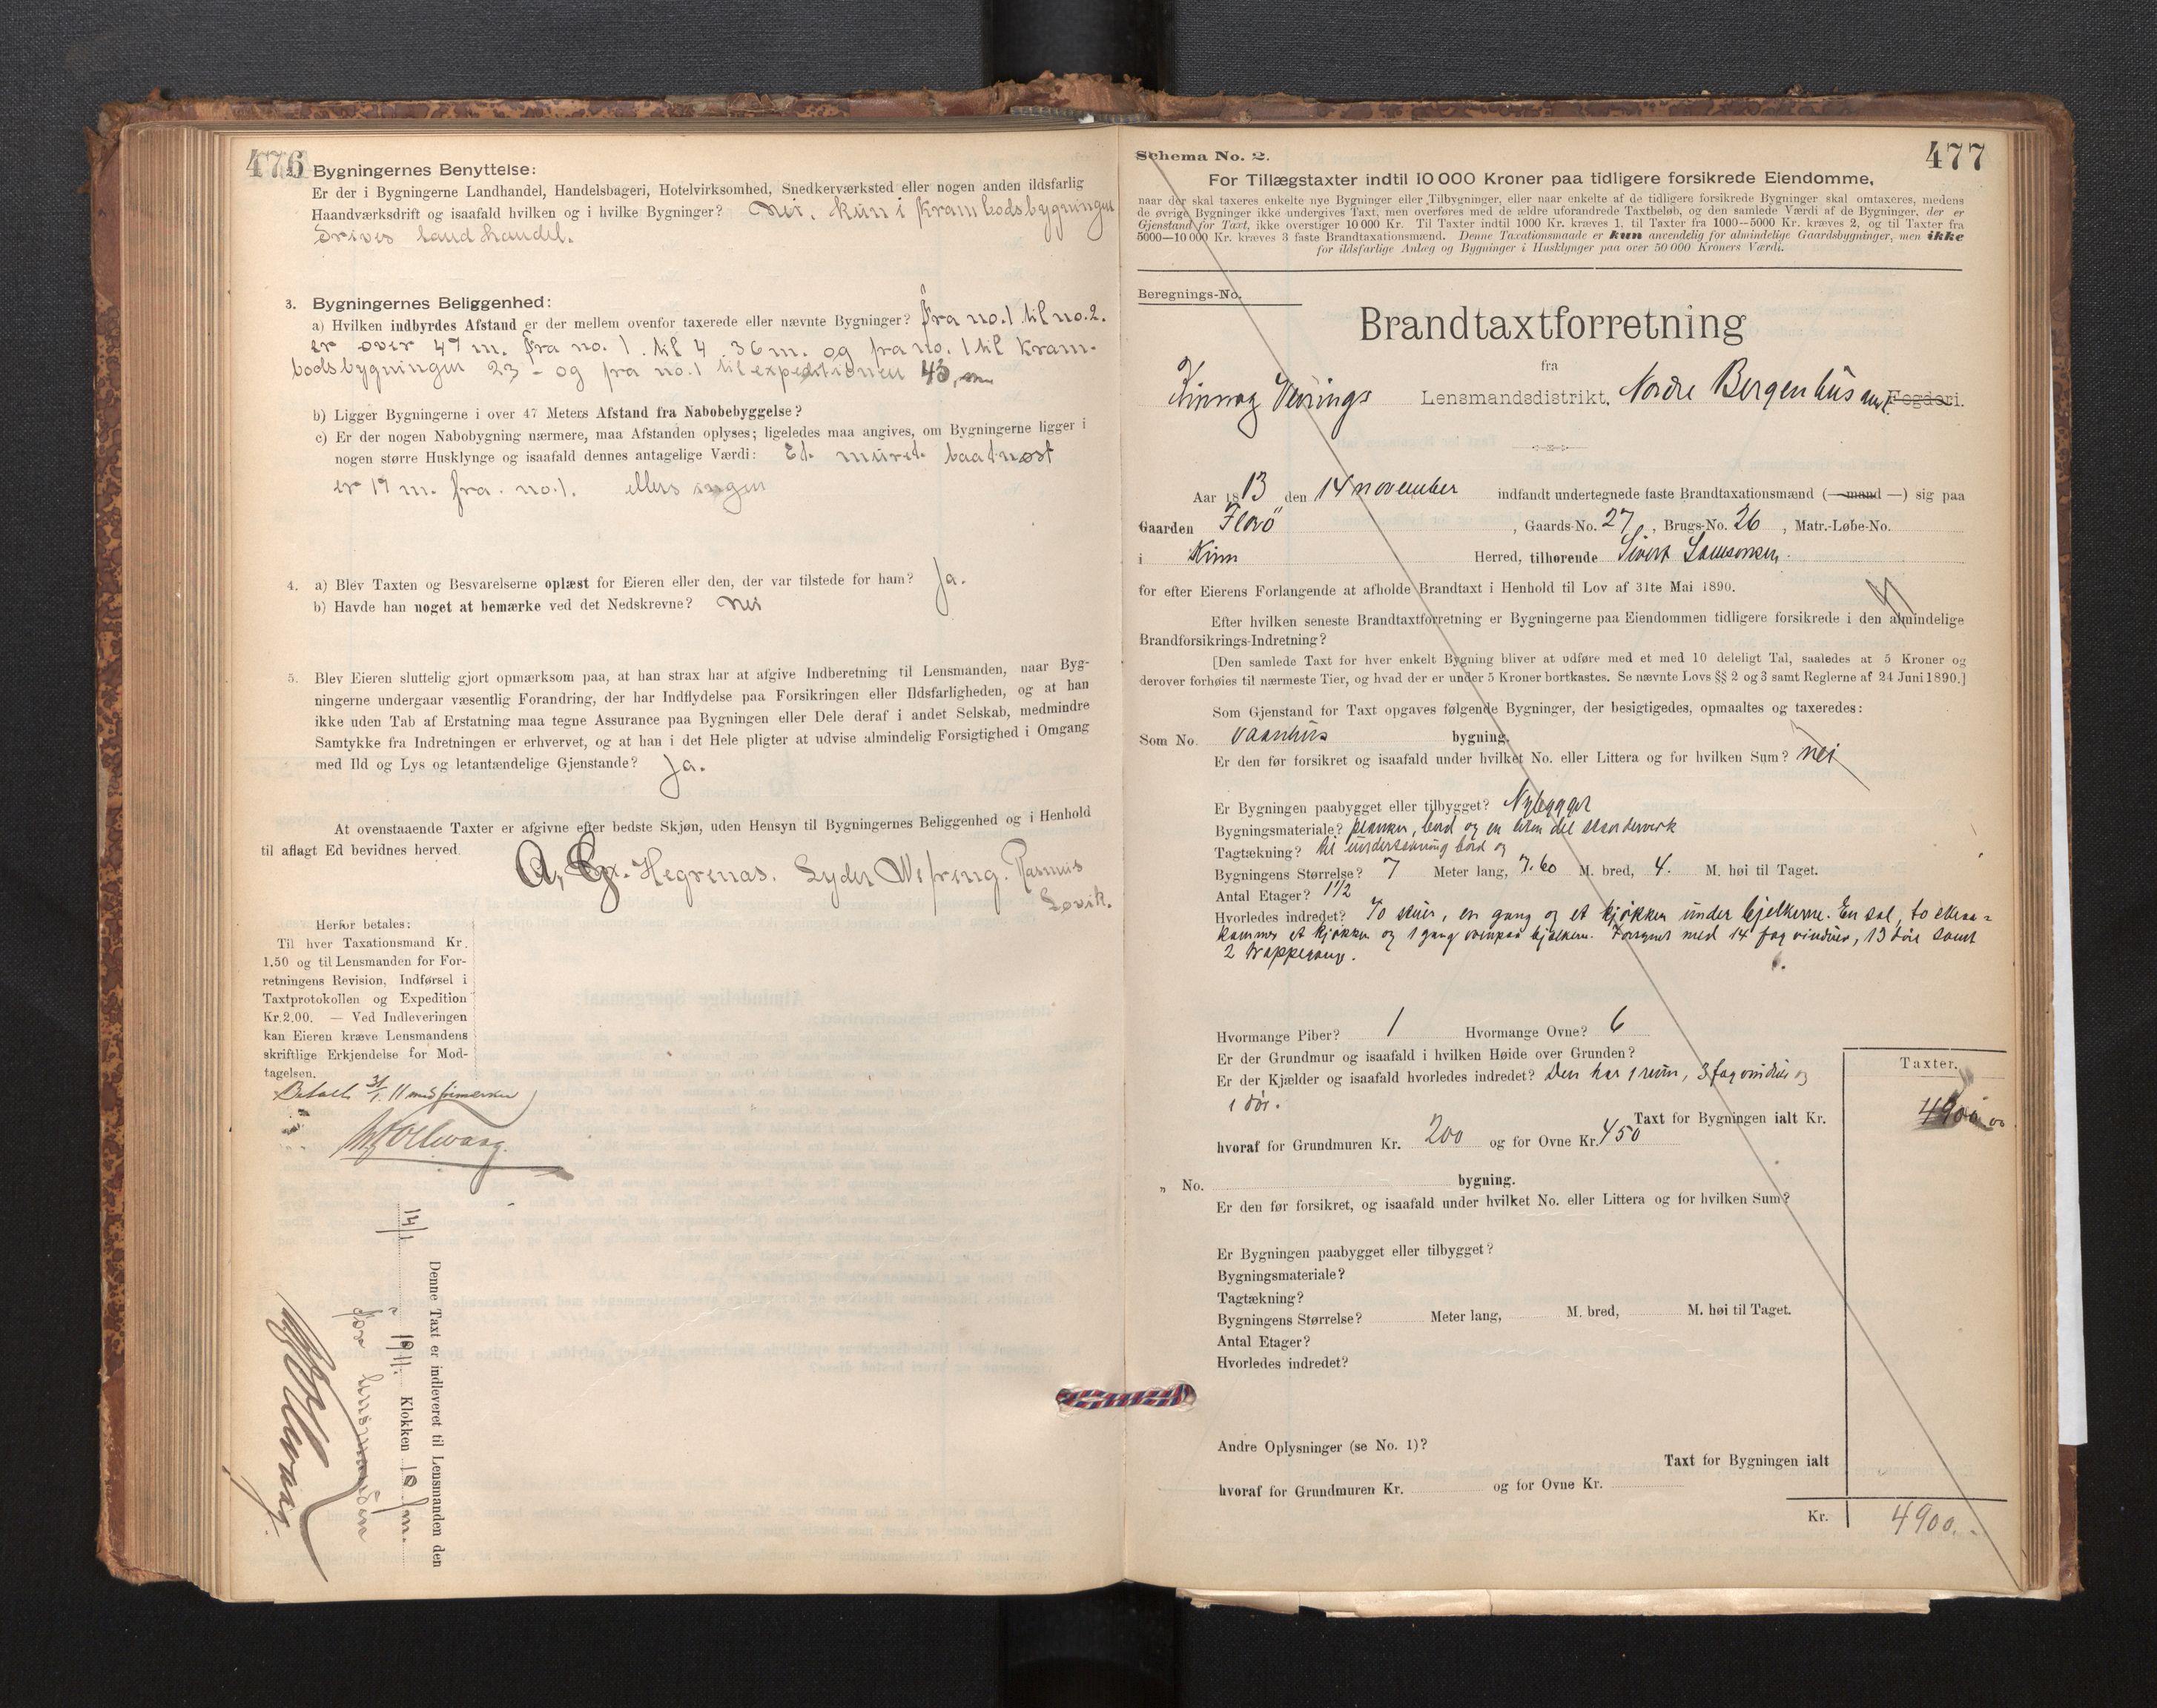 476
Bygningernes Benyttelse:
Er der i Bygningerne Landhandel, Handelsbageri, Hotelvirksomhed, Snedkerværksted eller nogen anden ildsfarlig
Haandværksdrift og isaafald hvilken og i hvilke Bygninger? Nei. kun i Krambodsbygningen
Drives landhandel.
3. Bygningernes Beliggenhed:
a) Hvilken indbyrdes Afstand er der mellem ovenfor taxerede eller nævnte Bygninger? Fra no. 1 til no. 2.
er over 47 m. fra no. 1 til 4 36 m. og fra no. 1 til Kram-
bodsbygningen 23 - og fra no. 1 til expeditionen 43, m
b) Ligger Bygningerne i over 47 Meters Afstand fra Nabobebyggelse?
c) Er der nogen Nabobygning nærmere, maa Afstanden oplyses; ligeledes maa angives, om Bygningerne ligger i
nogen større Husklynge og isaafald dennes antagelige Værdi: Et muret baatnøst
er 19 m. fra no. 1. ellers ingen
4. a) Blev Taxten og Besvarelserne oplæst for Eieren eller den, der var tilstede for ham? Ja.
b) Havde han noget at bemærke ved det Nedskrevne? Nei
5. Blev Eieren sluttelig gjort opmærksom paa, at han strax har at afgive Indberetning til Lensmanden, naar Byg-
ningerne undergaar væsentlig Forandring, der har Indflydelse paa Forsikringen eller Ildsfarligheden, og at han
ikke uden Tab af Erstatning maa tegne Assurance paa Bygningen eller Dele deraf i andet Selskab, medmindre
Samtykke fra Indretningen er erhvervet, og at han i det Hele pligter at udvise almindelig Forsigtighed i Omgang
med Ild og Lys og letantændelige Gjenstande? Ja.
At ovenstaaende Taxter er afgivne efter bedste Skjøn, uden Hensyn til Bygningernes Beliggenhed og i Henhold
til aflagt Ed bevidnes herved.
A. G. Hegrenas. Lyder Wefring. Rasmus
Løvik.
Herfor betales:
Til hver Taxationsmand Kr.
1.50 og til Lensmanden for For-
retningens Revision, Indførsel i
Taxtprotokollen og Expedition
Kr. 2.00. — Ved Indleveringen
kan Eieren kræve Lensmandens
skriftlige Erkjendelse for Mod-
tagelsen.
Betalt 31/1. 11 med frimerker
Denne Taxt er indleveret til Lensmanden den
14/1 1911. Klokken 10 fm.
for lensmanden
477
Schema No. 2.
For Tillægstaxter indtil 10 000 Kroner paa tidligere forsikrede Eiendomme,
naar der skal taxeres enkelte nye Bygninger eller Tilbygninger, eller naar enkelte af de tidligere forsikrede Bygninger skal omtaxeres, medens
de øvrige Bygninger ikke undergives Taxt, men overføres med de ældre uforandrede Taxtbeløb, og den samlede Værdi af de Bygninger, der er
Gjenstand for Taxt, ikke overstiger 10 000 Kr. Til Taxter indtil 1000 Kr. kræves 1, til Taxter fra 1000—5000 Kr. kræves 2, og til Taxter fra
5000—10 000 Kr. kræves 3 faste Brandtaxationsmænd. Denne Taxationsmaade er kun anvendelig for almindelige Gaardsbygninger, men ikke
for ildsfarlige Anlæg og Bygninger i Husklynger paa over 50 000 Kroners Værdi.
Beregnings-No.
Brandtaxtforretning
fra
Kinn og Vevrings Lensmandsdistrikt, Nordre Bergenhus amt Fogderi.
Aar 1813 den 14 november indfandt undertegnede faste Brandtaxationsmænd (—mand—) sig paa
Gaarden Florö, Gaards-No. 27, Brugs-No. 26, Matr.-Løbe-No.
i Kinn Herred, tilhørende Sivert Samsonsen.
for efter Eierens Forlangende at afholde Brandtaxt i Henhold til Lov af 31te Mai 1890.
Efter hvilken seneste Brandtaxtforretning er Bygningerne paa Eiendommen tidligere forsikrede i den almindelige
Brandforsikrings-Indretning?
[Den samlede Taxt for hver enkelt Bygning bliver at udføre med et med 10 deleligt Tal, saaledes at 5 Kroner og
derover forhøies til nærmeste Tier, og hvad der er under 5 Kroner bortkastes. Se nævnte Lovs §§ 2 og 3 samt Reglerne af 24 Juni 1890.]
Som Gjenstand for Taxt opgaves følgende Bygninger, der besigtigedes, opmaaltes og taxeredes:
Som No. vaanhus bygning.
Er den før forsikret og isaafald under hvilket No. eller Littera og for hvilken Sum? nei
Er Bygningen paabygget eller tilbygget? Nybygget
Bygningsmateriale? planker, bord og en liten del skorderverk
Tagtækning? bord og
Bygningens Størrelse? 7 Meter lang, 7.60 M. bred, 4. M. høi til Taget.
Antal Etager? 1 1/2
Hvorledes indredet? To stuer, en gang og et kjøkken under bjelkerne. En sal, to
kammer et kjøkken og 1 gang ovenpaa bjelkerne. Forsynet med 14 fag vinduer, 13 döre samt
2 trappegange.
Hvormange Piber? 1 Hvormange Ovne? 6
Er der Grundmur og isaafald i hvilken Høide over Grunden?
Er der Kjælder og isaafald hvorledes indredet? Den har 1 rum, 3 fag vinduer og
1 dör.
Taxter.
Taxt for Bygningen ialt Kr. 4900 00
hvoraf for Grundmuren Kr. 200 og for Ovne Kr. 450
„ No. bygning.
Er den før forsikret, og isaafald under hvilket No. eller Littera og for hvilken Sum?
Er Bygningen paabygget eller tilbygget?
Bygningsmateriale?
Tagtækning?
Bygningens Størrelse? Meter lang, M. bred, M. høi til Taget.
Antal Etager?
Hvorledes indredet?
Andre Oplysninger (se No. 1)?
Taxt for Bygningen ialt
hvoraf for Grundmuren Kr. og for Ovne Kr.
Kr. 4900.-